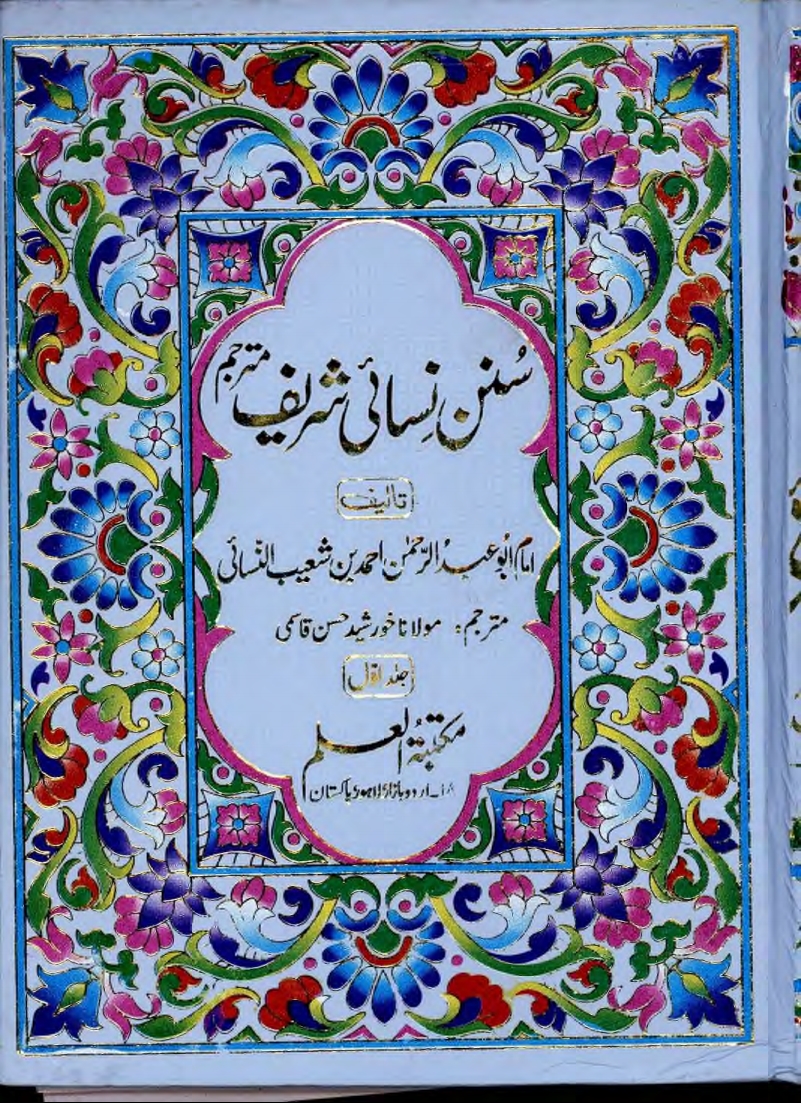 سُنن نِسائی شریف مترجم
تالیف
امام ابُو عبدُ الرحمٰن احمد بن شعیب النّسائی
مترجم: مولانا خورشید حسن قاسمی
جلد اوّل
مکتبۃُ العلم
۱۸۔ اردو بازار لاہور پاکستان